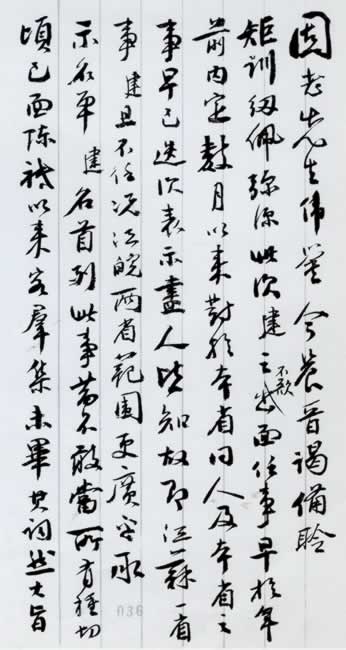 固老先生偉鑒 今晨晉謁備聆
矩訓紉佩彌深此次建之不欲出面任事早於年
前內定數月以來對於本省同人及本省之
事早已迭次表示盡人皆知故即江蘇一省
事建且不任況江皖兩省範圍更廣乎承
示名單建名首列此事萬不敢當所有種切
頃已面陳祇以來客羣集未畢其詞然大旨
036